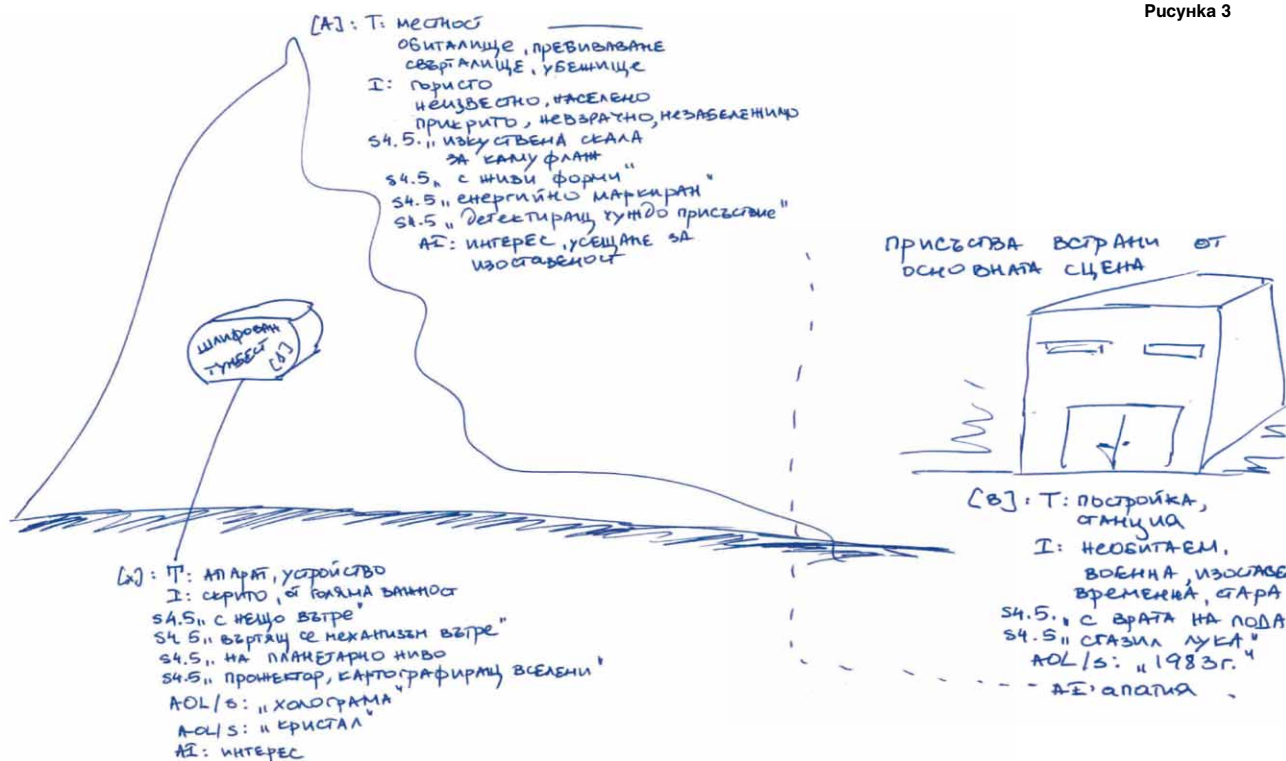 Рисунка 3
[A]: T: местност
обиталище, пребиваване
свърталище, убежище
I: гористо
неизвестно, населено
прикрито, невзрачно, незабележимо
S4.5. „изкуствена скала
за камуфлаж
S4.5 „с живи форми“
S4.5 „енергийно маркиран“
S4.5 „детектиращ чуждо присъствие“
AI: интерес, усещане за
изоставеност
присъства встрани от
основната сцена
шлифован
[B]: T: постройка,
станциа
I: необитаем,
военна, изоставе
временна, стара
S4.5. „с врата на пода
S4.5 „
AOL/s: „1983г.“
AI: апатия
[x]: T: апарат, устройство
I: скрито, от голяма важност
S4.5 „с нещо вътре“
S4.5 „въртящ се механизъм вътре“
S4.5 „на планетарно ниво
S4.5 „прожектор, картографиращ вселени“
AOL/S: „холограма“
AOL/S: „кристал“
AI: интерес